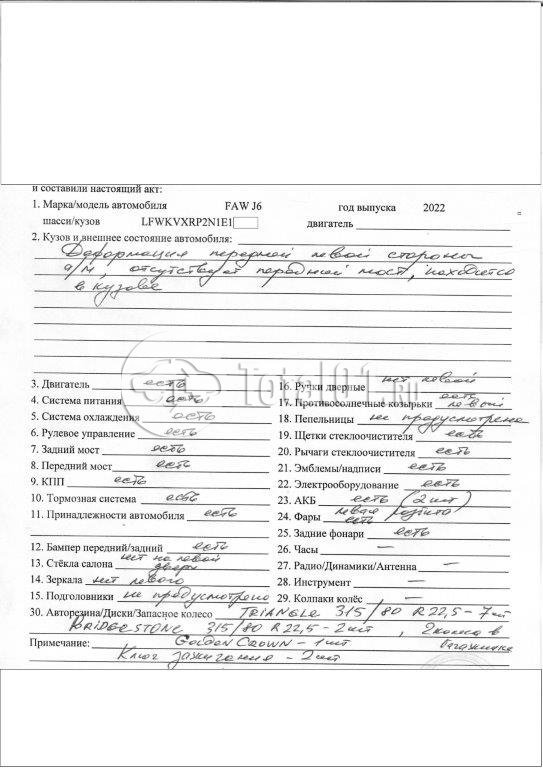 и составили настоящий акт:
1. Марка/модель автомобиля FAW J6 год выпуска 2022
шасси/кузов LFWKVXRP2N1E1 двигатель
2. Кузов и внешнее состояние автомобиля:
Деформация передней левой стороны
а/м, отсутствует передний мост, находится
в кузове
3. Двигатель есть
4. Система питания есть
5. Система охлаждения есть
6. Рулевое управление есть
7. Задний мост есть
8. Передний мост есть
9. КПП есть
10. Тормозная система есть
11. Принадлежности автомобиля есть
12. Бампер передний/задний есть
13. Стёкла салона нет на левой двери
14. Зеркала нет левого
15. Подголовники не предусмотрено
16. Ручки дверные нет левой
17. Противосолнечные козырьки есть левый
18. Пепельницы не предусмотрена
19. Щетки стеклоочистителя есть
20. Рычаги стеклоочистителя есть
21. Эмблемы/надписи есть
22. Электрооборудование есть
23. АКБ есть (2 шт)
24. Фары левая разбита есть
25. Задние фонари есть
26. Часы —
27. Радио/Динамики/Антенна —
28. Инструмент —
29. Колпаки колёс —
30. Авторезина/Диски/Запасное колесо TRIANGLE 315/80 R22,5 – 7 шт
BRIDGESTONE 315/80 R22,5 – 2 шт, 2 колеса в
Примечание: Golden Crown – 1 шт багажнике
Ключ зажигания – 2 шт
Total01.ru